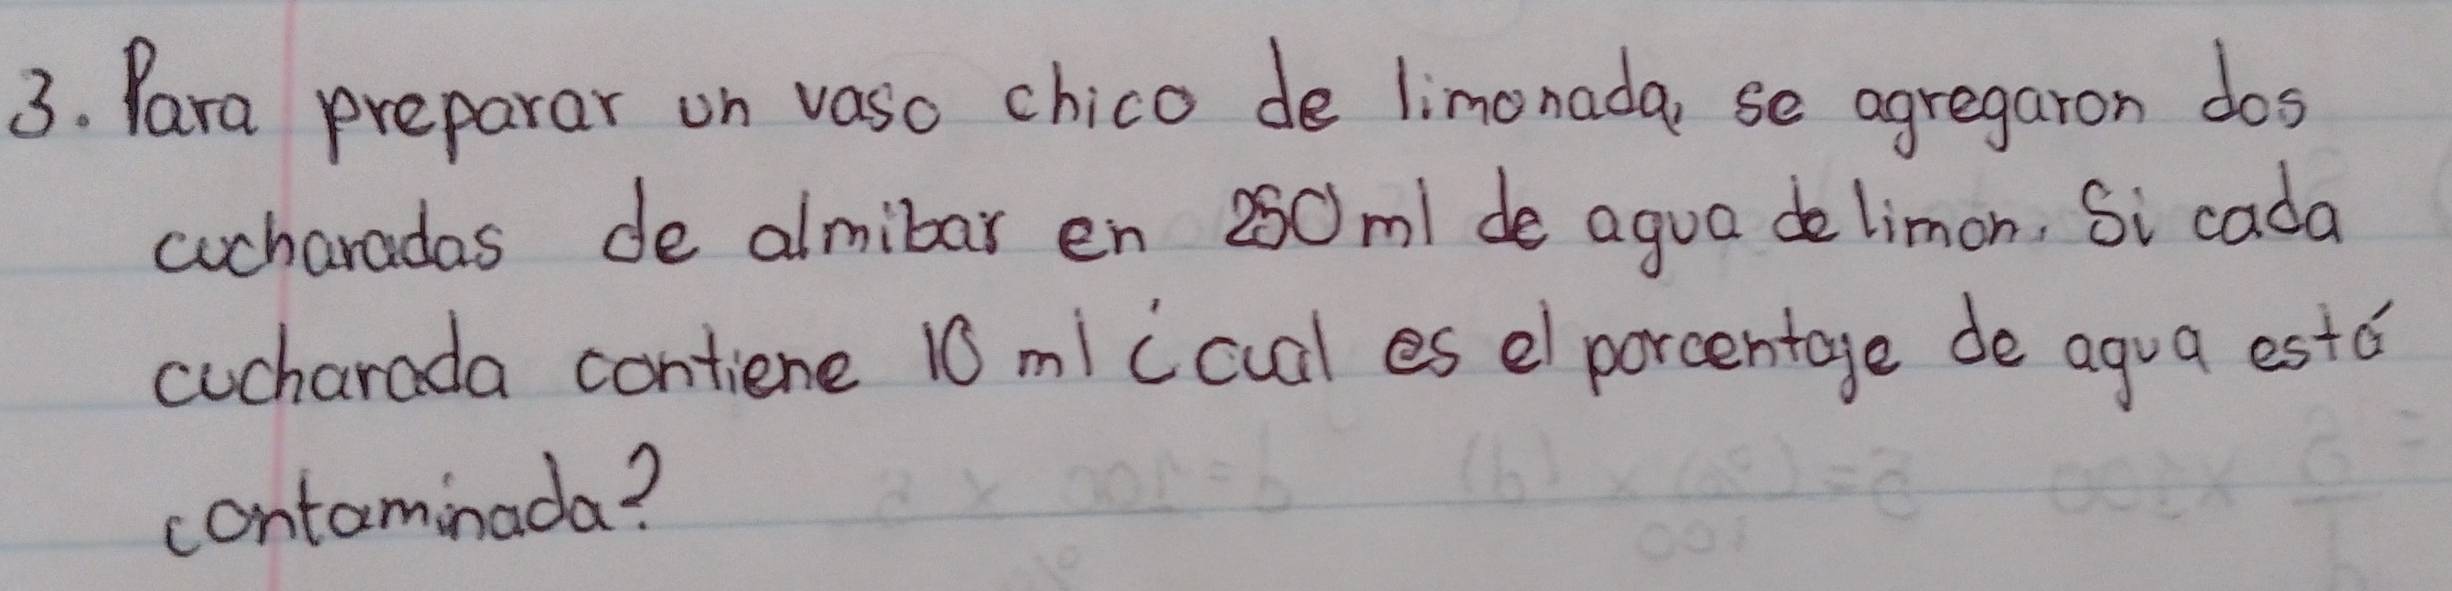 3. Para preparar un vaso chico de limonada, se agregaron dos
cucharadas de almibar en 250 ml de agua de limon. Si cada
cucharada contiene 10 ml ¿cual es el porcentaje de agua está
contaminada?